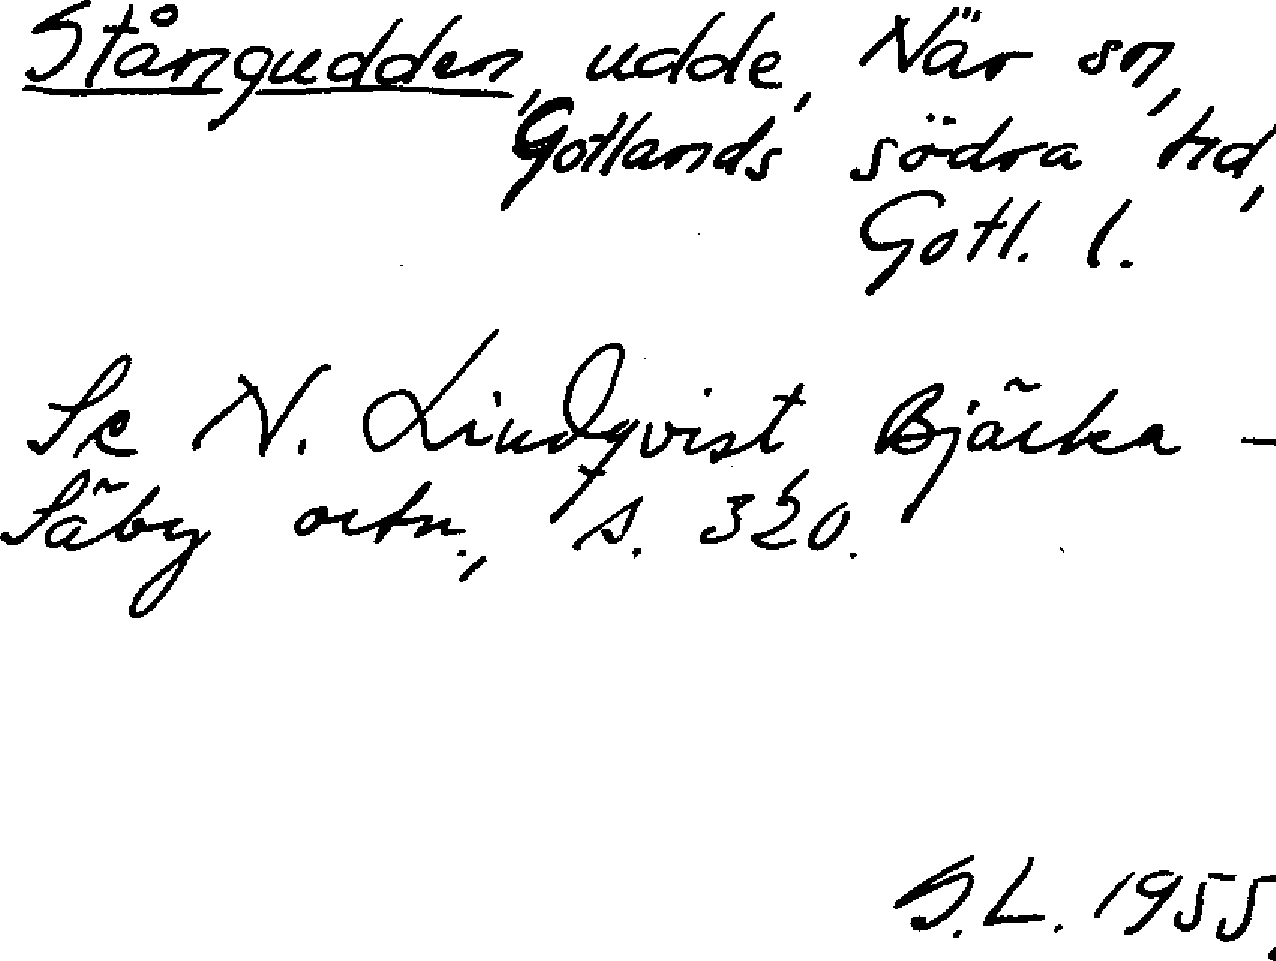 Stångudden, udde, När sn,
Gotlands södra hd,
Gotl. l.
Se N. Lindqvist, Bjärka-
Säby ortn., s. 320.
S.L. 1955.